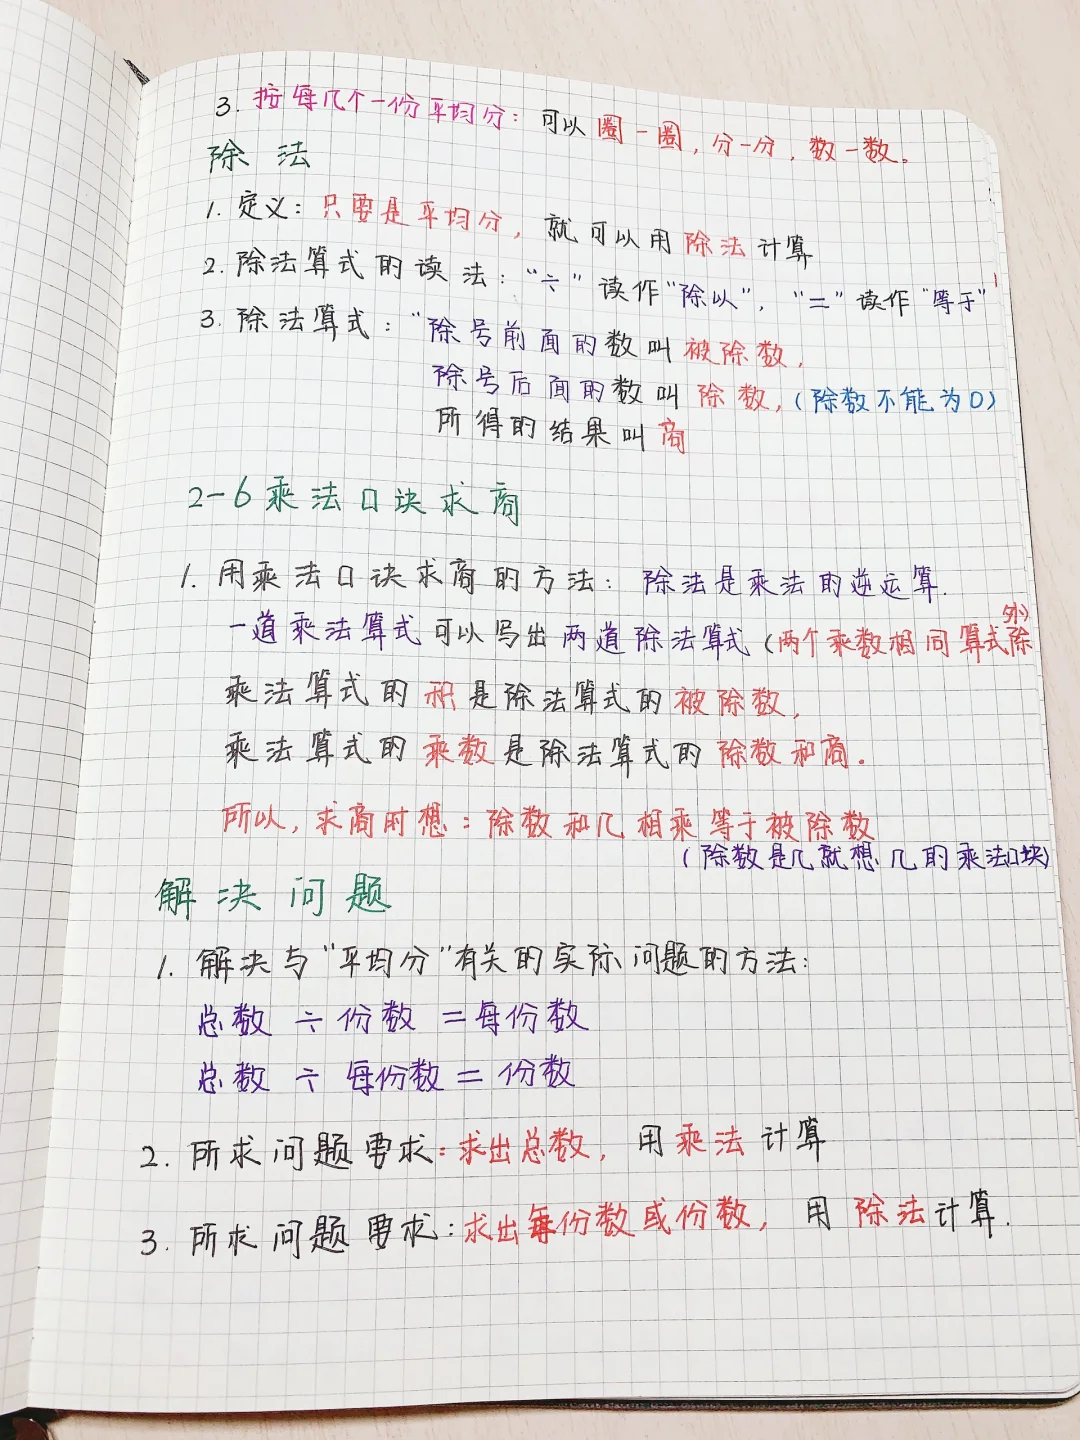 3. 按每几个一份平均分：可以圈一圈，分一分，数一数。
除法
1. 定义：只要是平均分，就可以用除法计算
2. 除法算式的读法："÷"读作"除以"，"="读作"等于"
3. 除法算式："除号前面的数叫被除数，
除号后面的数叫除数，(除数不能为0)
所得的结果叫商
2-6乘法口诀求商
1. 用乘法口诀求商的方法：除法是乘法的逆运算.
一道乘法算式可以写出两道除法算式(两个乘数相同算式除外)
乘法算式的积是除法算式的被除数，
乘法算式的乘数是除法算式的除数和商。
所以，求商时想：除数和几相乘等于被除数
(除数是几就想几的乘法口块)
解决问题
1. 解决与"平均分"有关的实际问题的方法：
总数÷份数=每份数
总数÷每份数=份数
2. 所求问题要求：求出总数，用乘法计算
3. 所求问题要求：求出每份数或份数，用除法计算.